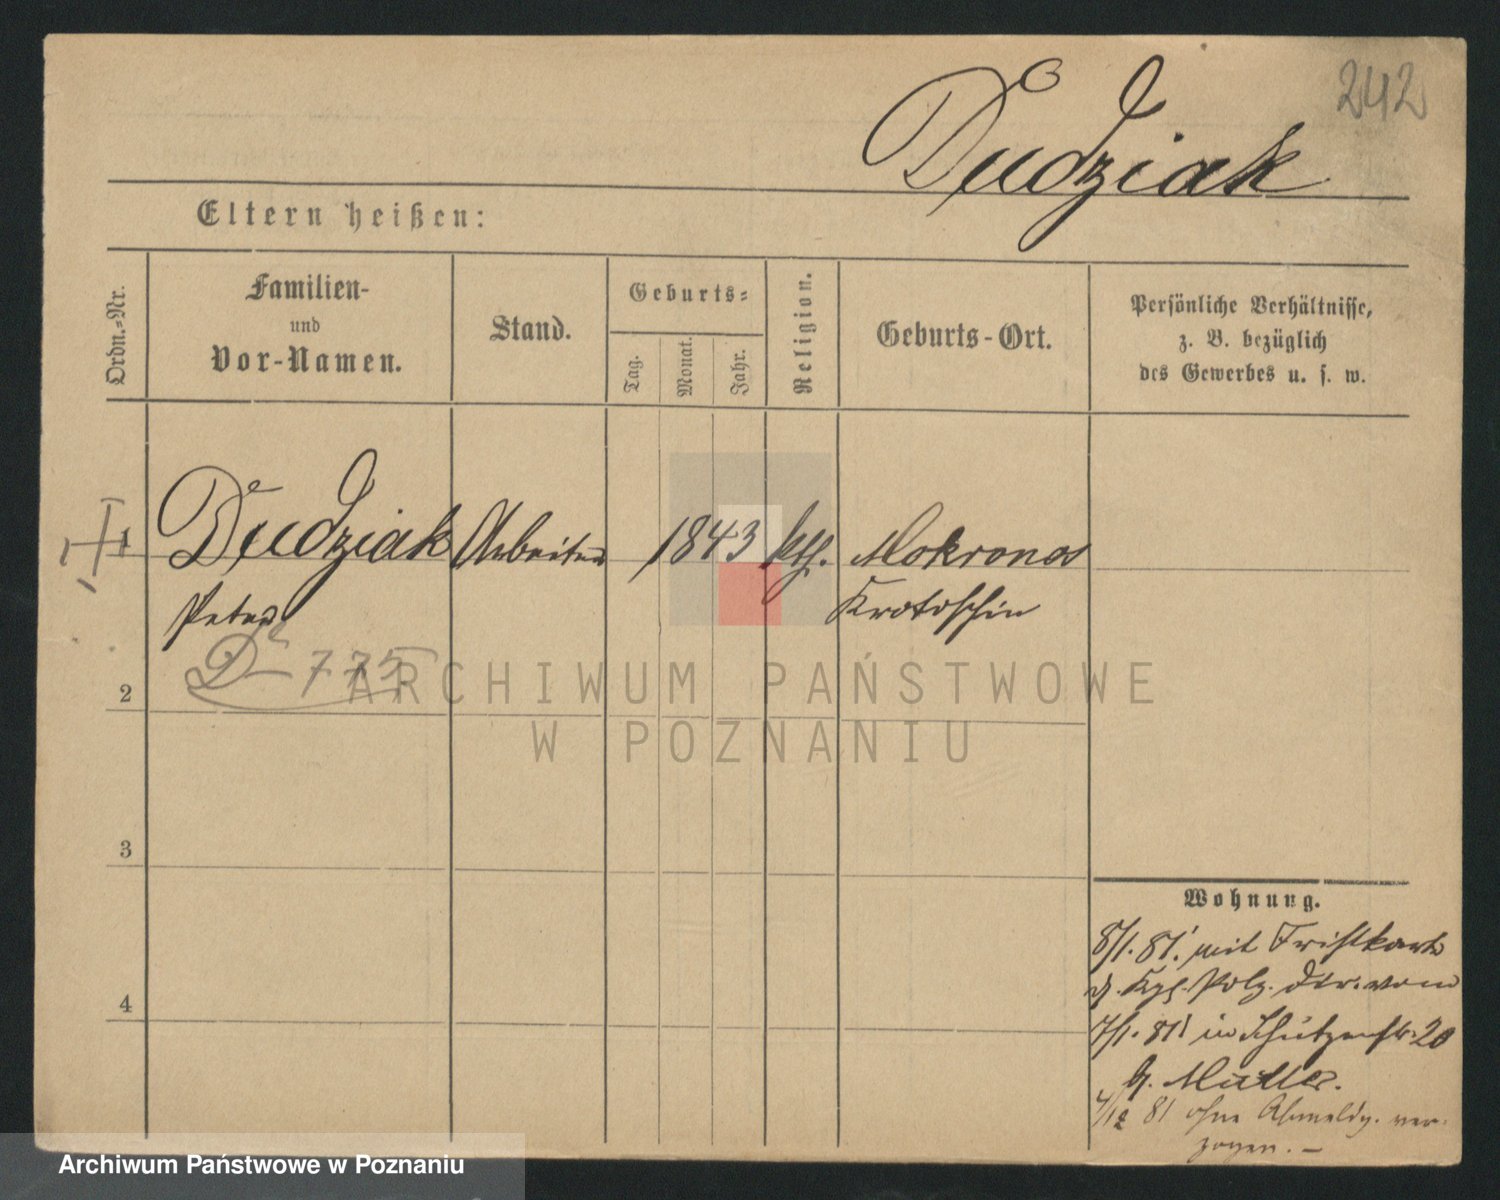 242
Dudziak
Eltern heißen:
Ordn.-Nr.
Familien-
und
Vor-Namen.
Stand.
Geburts-
Tag.
Monat.
Jahr.
Religion.
Geburts-Ort.
Persönliche Verhältnisse,
z. B. bezüglich
des Gewerbes u. s. w.
1
Dudziak Arbeiter 1843 kth. Mokronos
Peter Krotoschin
D 775
2
3
4
Wohnung.
8/1. 81. mit Fristkarte
d. Kgl. Polz. Dir. vom
7/1. 81 in Schützenstr. 20
b. Mutter.
4/12 81 ohne Abmeldg. ver-
zogen. —
ARCHIWUM PAŃSTWOWE
W POZNANIU
Archiwum Państwowe w Poznaniu